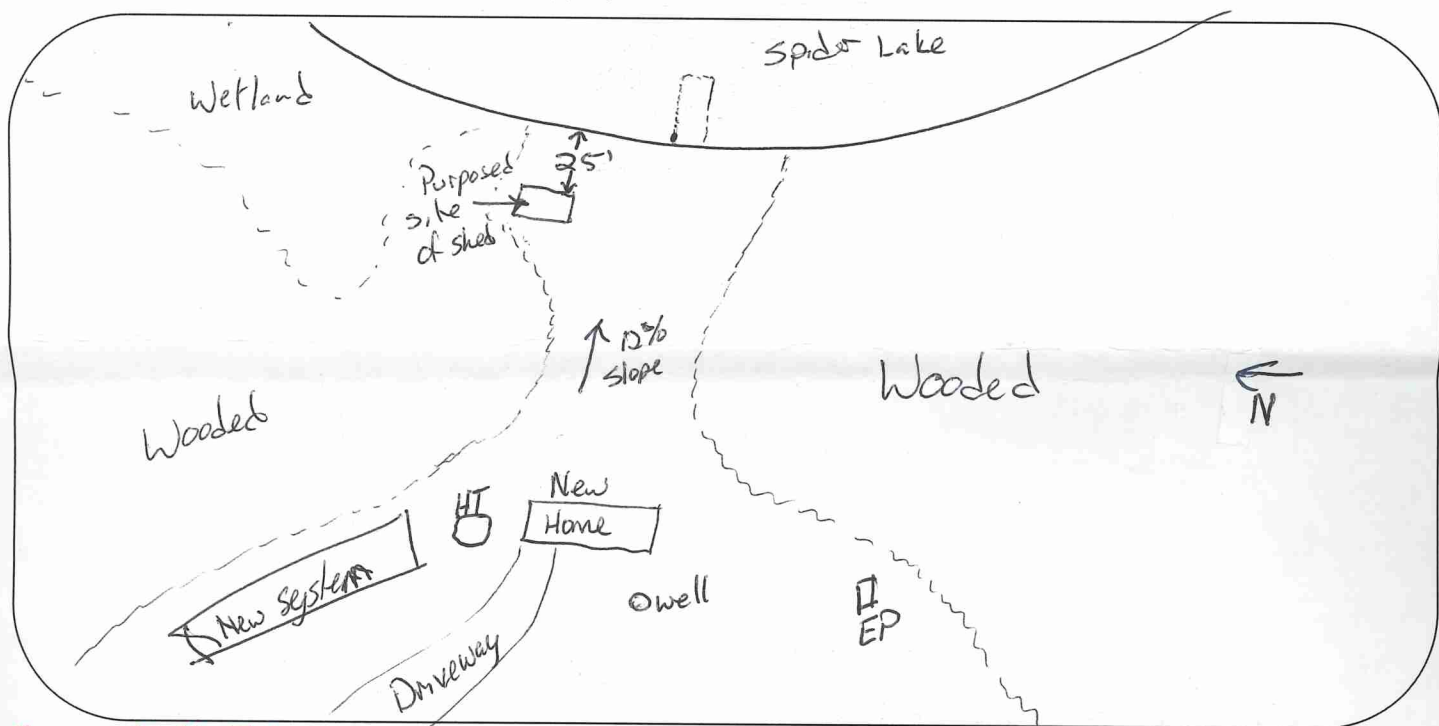 Spider Lake
Wetland
25'
Purposed
site
of shed
12%
slope
Wooded
N
Wooded
HT
New
Home
New system
well
EP
Driveway